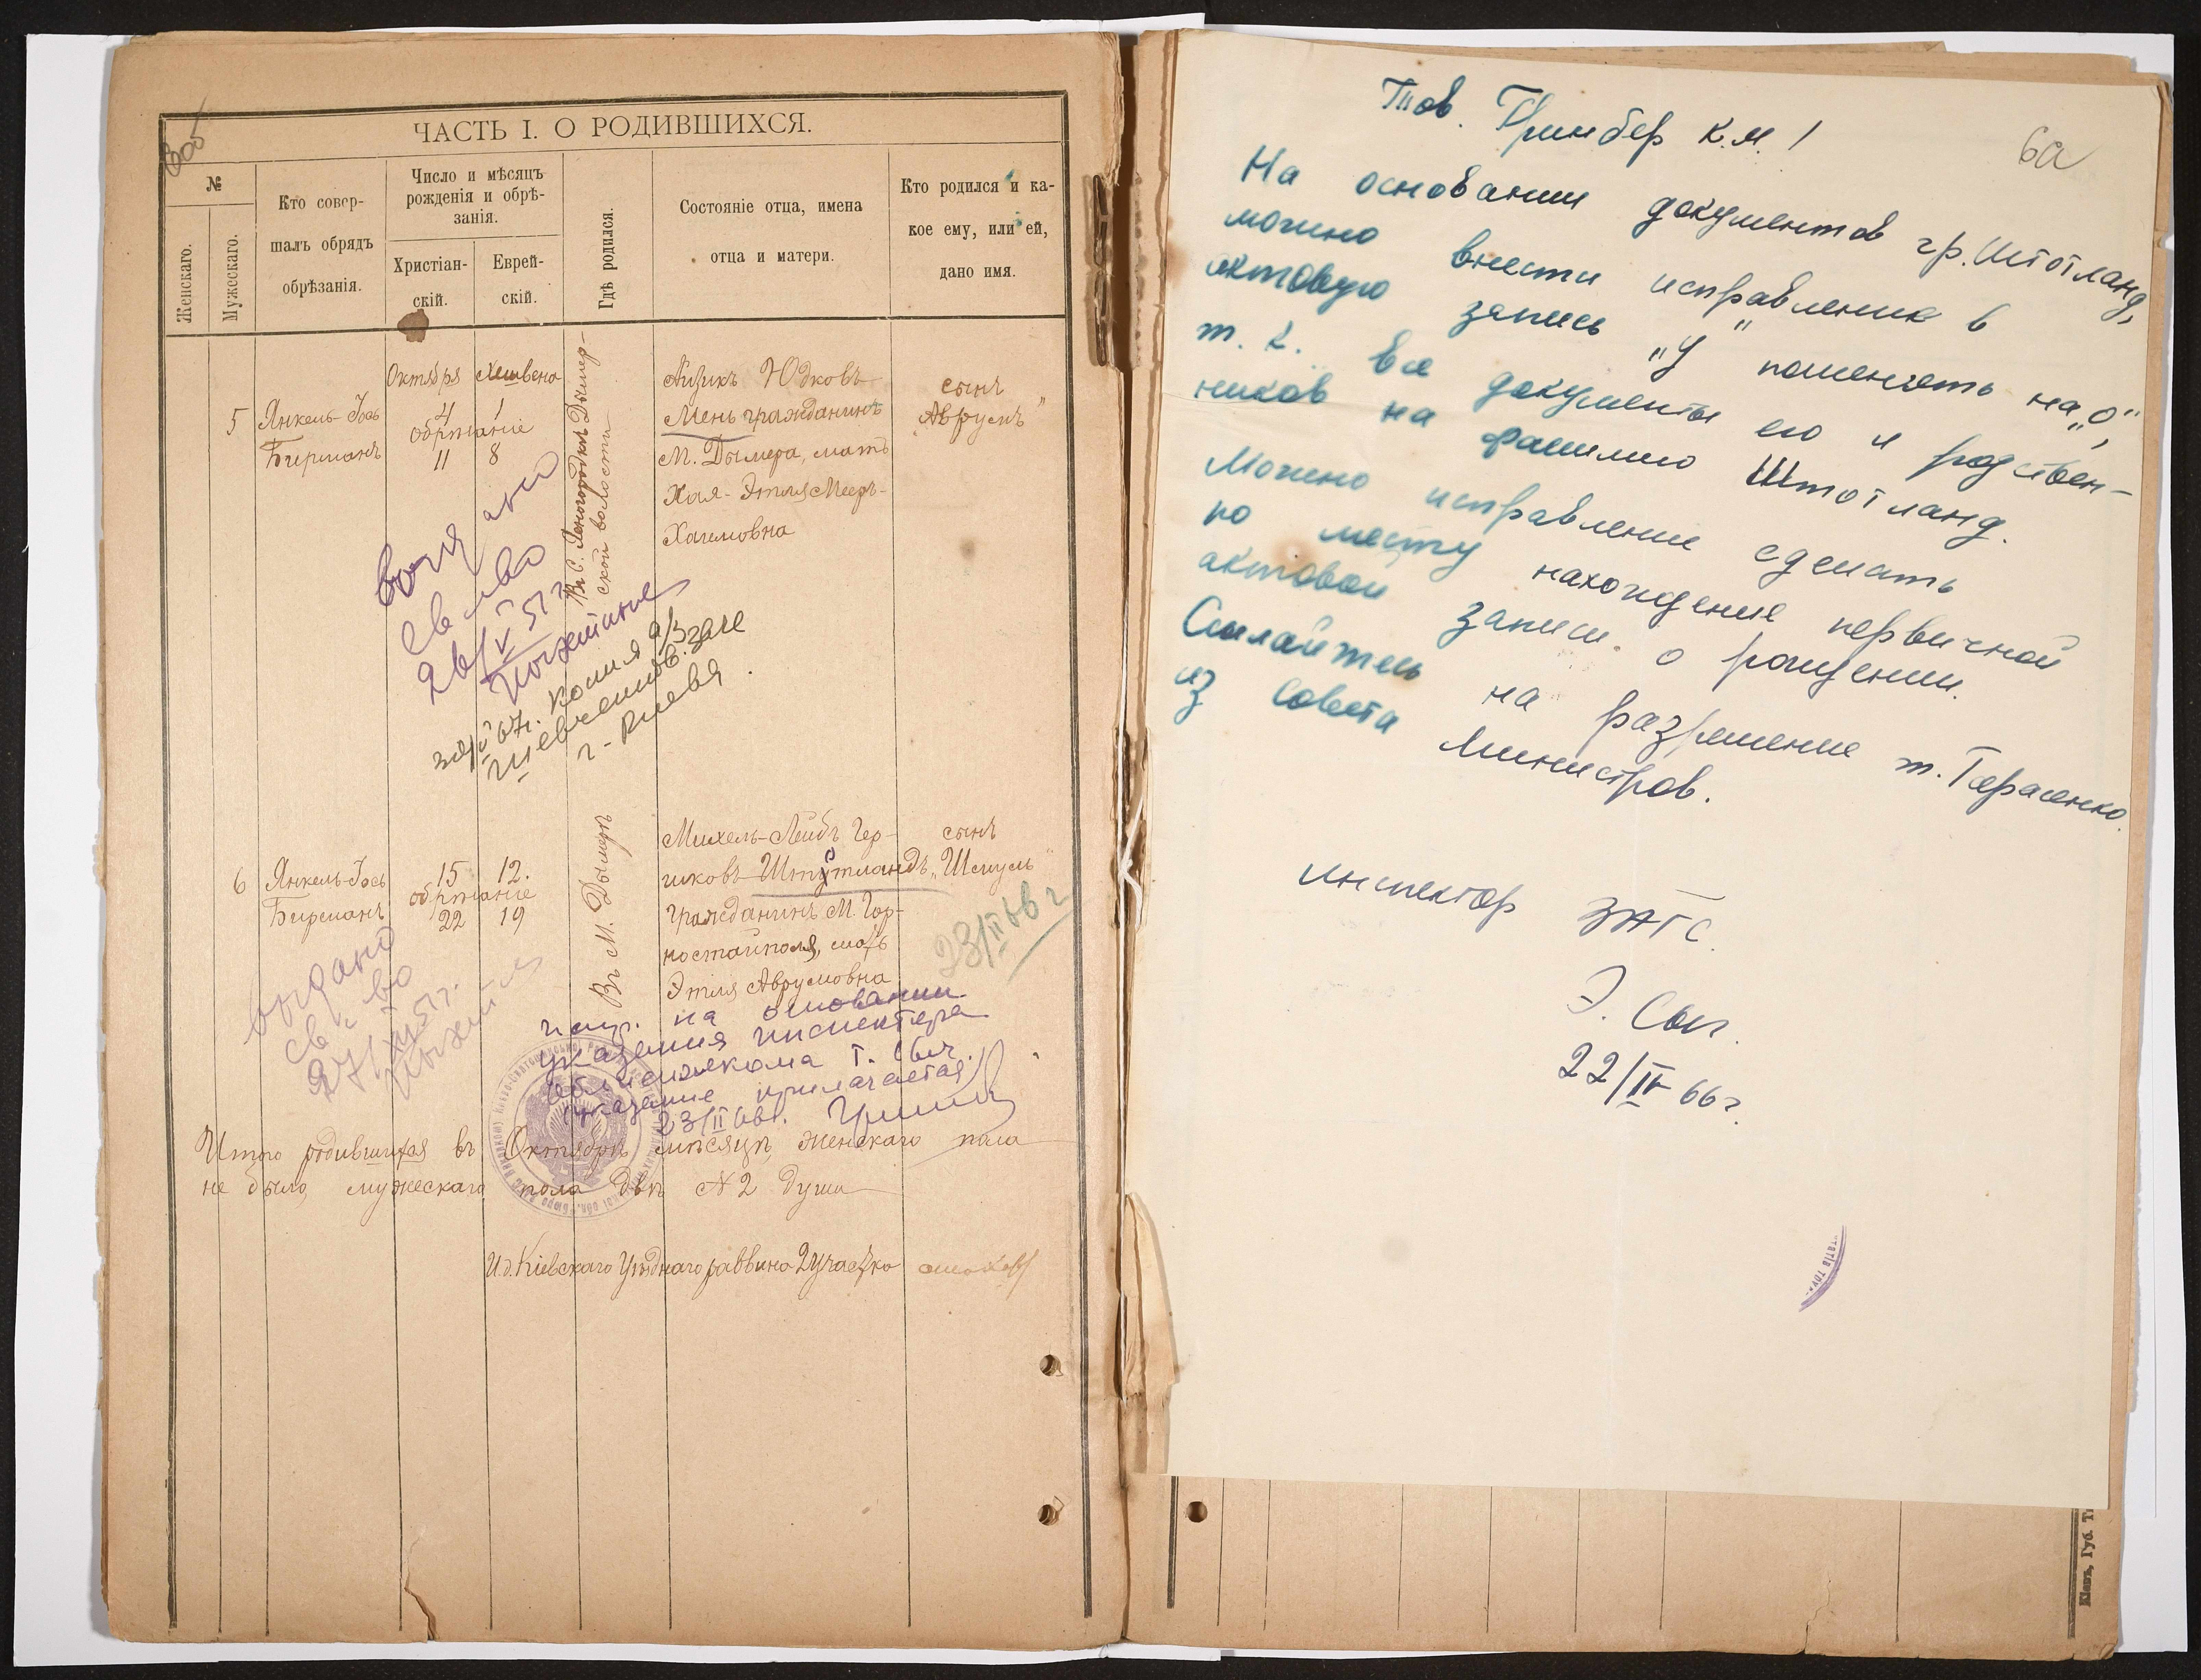 ЧАСТЬ I. О РОДИВШИХСЯ.
№
Женскаго.
Мужескаго.
Кто совер-
шалъ обрядъ
обрѣзанія.
Число и мѣсяцъ
рожденія и обрѣ-
занія.
Христіан-
скій.
Еврей-
скій.
Гдѣ родился.
Состояніе отца, имена
отца и матери.
Кто родился и ка-
кое ему, или ей,
дано имя.
5
Янкель-Іось
Бирманъ
Октября
4
обрѣзаніе
11
Хешвена
1
8
Въ С. Дымер-
ской волости
Айзикъ Юдковъ
Мень гражданинъ
М. Дымера, мать
Хая-Этля Меер-
Хаимовна
сынъ
Аврумъ"
26/V 51 г.
копия а/з
г. Киева.
6
Янкель-Іось
Бирманъ
15
обрѣзаніе
22
12.
19
Въ М. Дымерѣ
Михель-Лейбъ Гер-
шковъ Штутландъ
гражданинъ М. Гор-
ностайполя, мать
Этля Аврумовна
сынъ
„Шмуль"
23/II 66 г
выдано
св-во
27/XII 51 г.
испр. на основании
указания инспектора
облисполкома т. Сыч.
(указание прилагается)
23/II 66 г.
Итого родившихся въ Октябрѣ мѣсяцѣ женскаго пола
не было, мужескаго пола двѣ № 2 души
И.д. Кіевскаго Уѣзднаго раввина 2 участка
6а
Тов. Гринбер К.М.!
На основании документов гр. Штотланд,
можно внести исправление в
актовую запись „У" поменять на „О",
т. к. все документы его и родствен-
ников на фамилию Штотланд.
Можно исправление сделать
по месту нахождение первичной
актовой записи о рождении.
Сылайтесь на разрешение т. Герасенко
из Совета Министров.
инспектор ЗАГС.
Э. Сыч.
22/II 66 г.
Кіевъ, Губ. Т